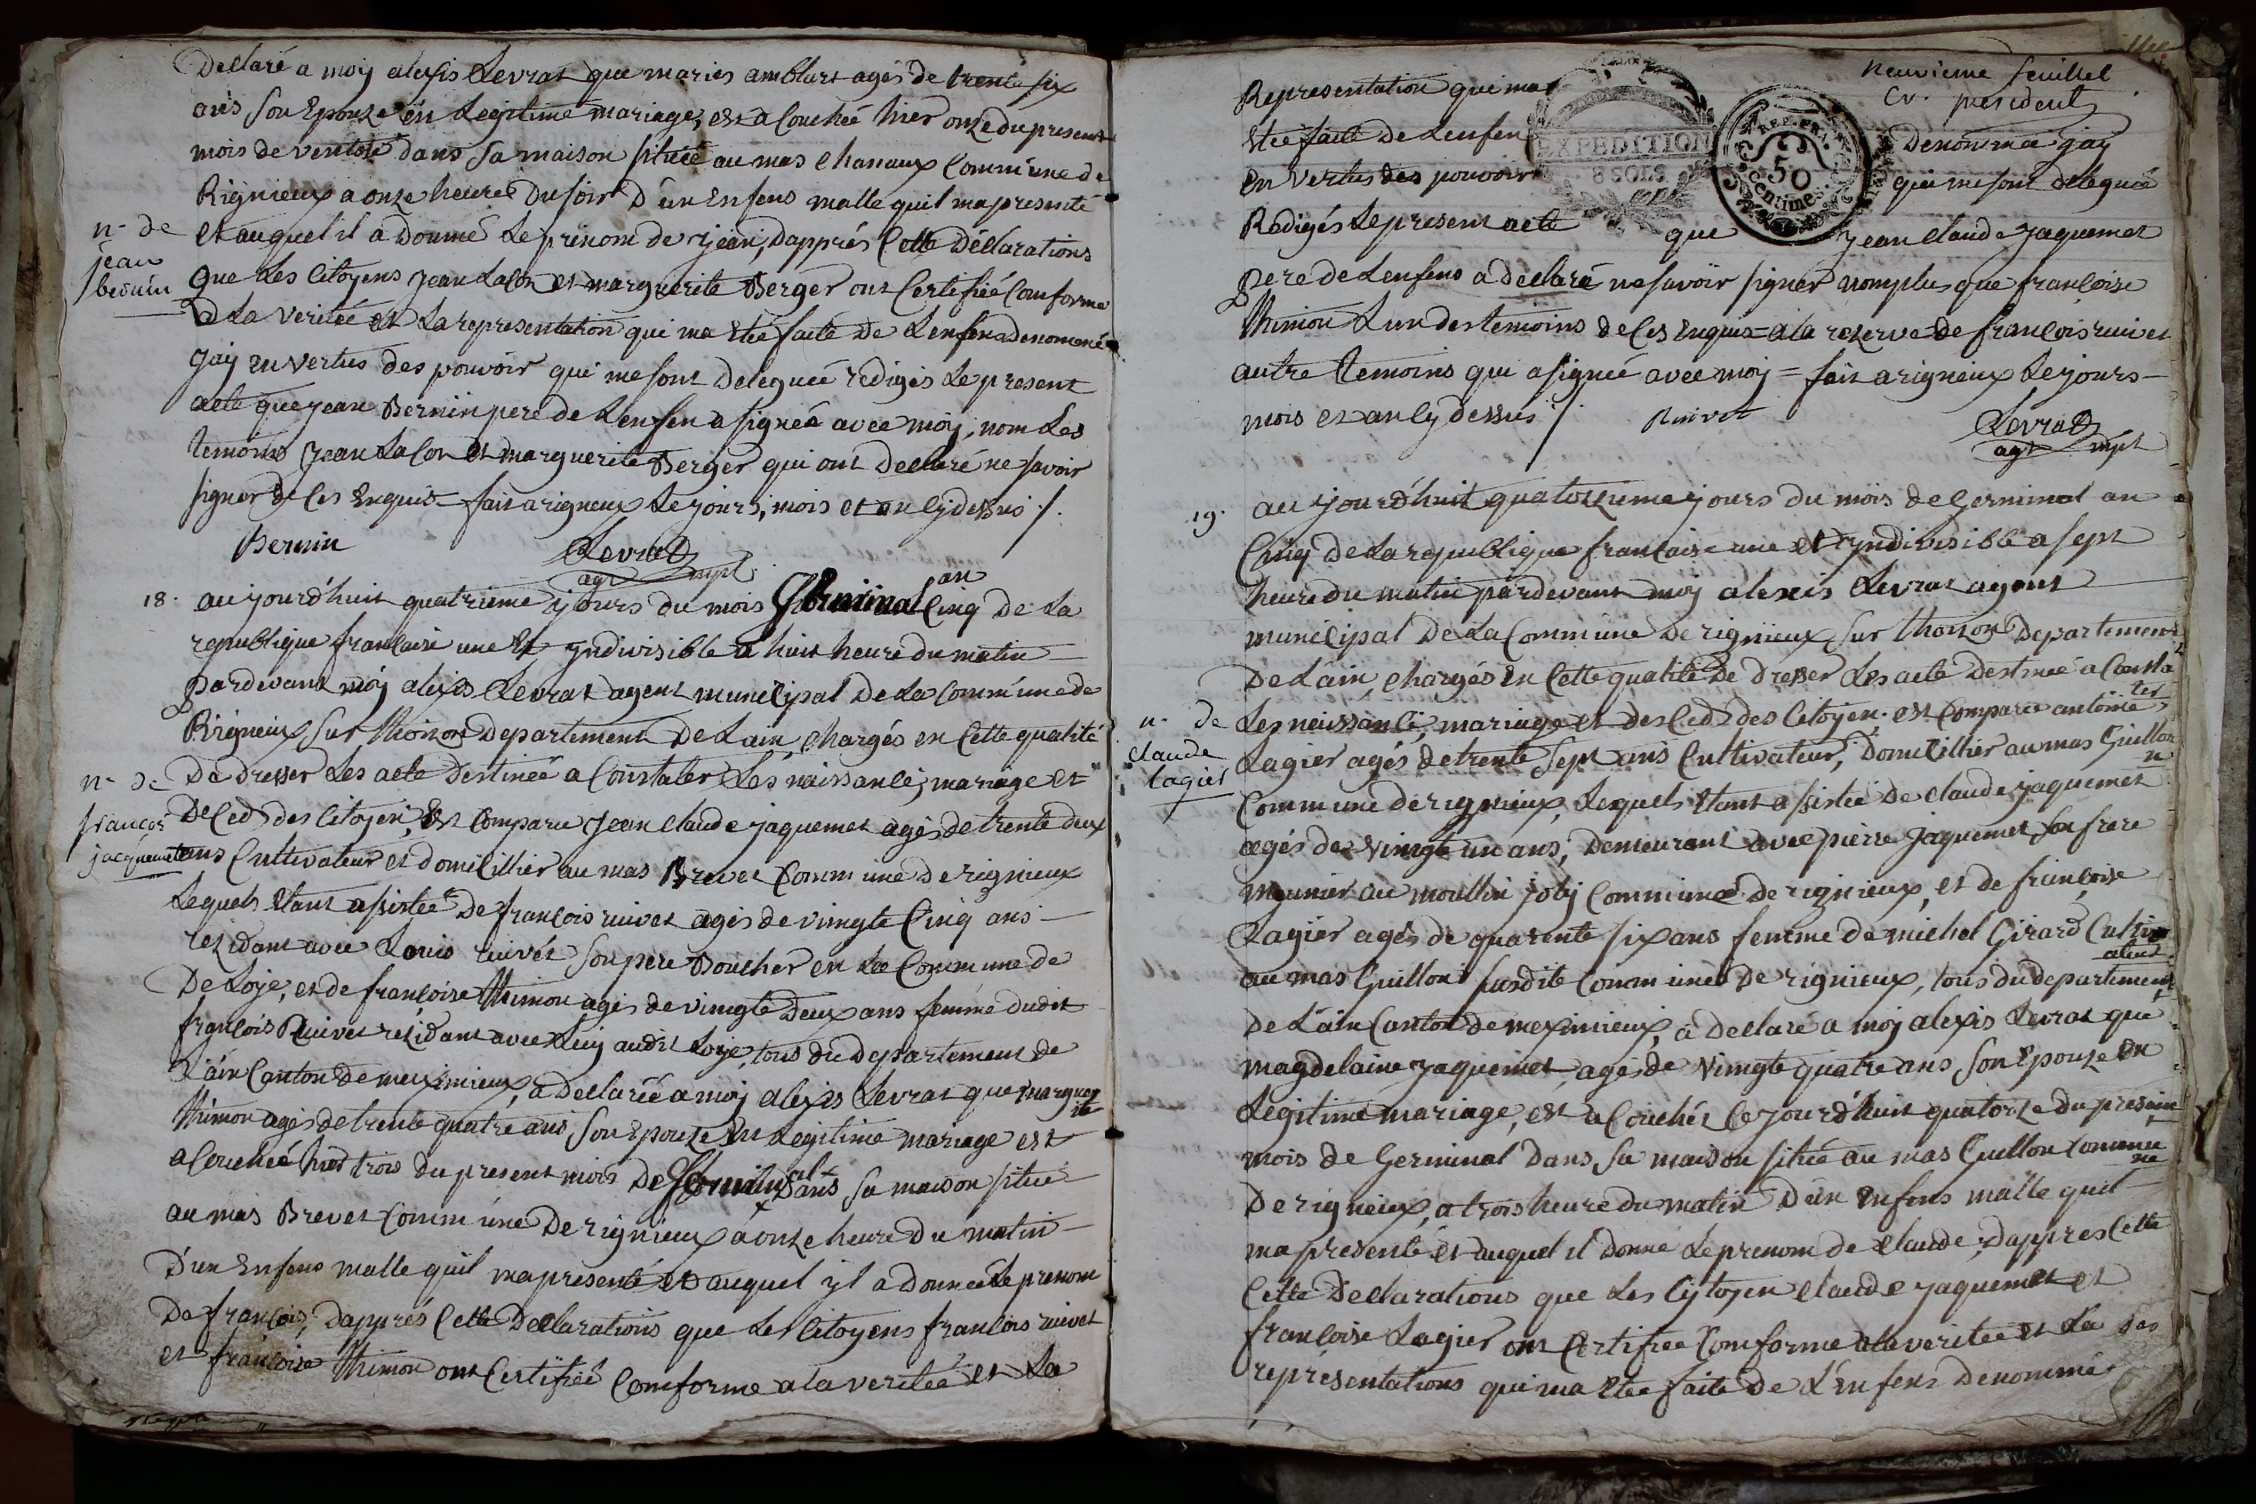 Declaré a moy alexis Levrat que maries amblart agés de trente six
ans son Epouze en Legitime mariage, est acouchée hier onze du present
mois de ventose dans sa maison située au mas chanaux Commune de
Rignieux a onze heure du soir d'un Enfens malle quil ma presenté
et auquel il a donné Le prénom de jean, dapprés Cette Déclarations
Que Les Citoyens Jean Lacon et marguerite Berger ont Certifiée Conforme
a La veritée et La representation qui ma etée faite de Lenfen denommé
Jay en vertus des pouvoir qui me sont deleguée rédigés Le present
acte que jean Bernin pere de Lenfen a signée avec moy, nom Les
temoins Jean Lacon et marguerite Berger qui ont declaré ne savoir
signer de Ces Enquis fait a rignieux Le jours, mois et an cy dessus ./.
n.^ce de
jean
bernin
Bernin Levrat
agt mpl
18. aujourd'huit quatrieme jours du mois Germinal an Cinq de La
republique francaise une Et yndivisible a huit heure du matin
Pardevant moy alexis Levrat agent municipal De La Commune de
Rignieux sur thoizon Departement De Lain, chargés en Cette qualité
De dresser Les acte Destinée a Constater Les naissance, mariage et
DeCed des Citoyen, Est Comparu Jean Claude jaquemet agés de trente deux
ans Cultivateur et domicillier au mas Brevet Commune de rignieux
Lequels Etant assistée De françois ruivet agés de vingte Cinq ans
rezidant avec Louis ruivet son pere Boucher en La Commune de
De Loye, et de françoise thimon agés de vingte Deux ans femme dudit
françois Ruivet rezidant avec Luy audit Loye, tous du Departement de
L'ain Canton de meximieux, a declarée a moy alexis Levrat que marguerite
thimon agés de trente quatre ans son Epouze En Legitime mariage est
acouchée hier trois du present mois De Germinal dans sa maison située
au mas Brevet Commune De rignieux a onze heure du matin
D'un Enfens malle quil ma presenté et auquel yl a donnée Le prenom
De françois, dapprés Cette Declarations que Les Citoyens françois ruivet
et françoise thimon ont Certifiée Comforme a la veritée et La
n.^ce de
françois
jacquemet
neuvieme feuillet
Cv. president
Representation qui ma
Etée faite de Lenfen denommée jay
en vertus des pouvoir qui me sont deleguée
Redigés Le present acte que jean Claude jaquemet
Pere de Lenfens a declaré ne savoir signer nomplus que françoise
thimon L'un des temoins de Ces enquis = a la rezerve de françois ruivet
autre temoins qui a signée avec moy = fait a rignieux Le jours
mois et an Cy dessus ./. Ruivet
Levrat
agt mpl
EXPEDITION
8 SOLS
REP. FRA.
50
Centimes
19. aujourd'huit quatorzieme jours du mois de Germinal an
Cinq de La republique francaise une et yndivisible a sept
heure du matin pardevant moy alexis Levrat agent
municipal De La Commune De rignieux sur thoizon Departement
De L'ain, chargés En Cette qualité De dresser Les acte Destinée a Constater
Les naissance, mariage et des Ced des Citoyen. est Comparu antoine
Lagier agés de trente sept ans Cultivateur, Domicillier au mas Guillon
Commune de rignieux, Lequels Etant assistée De claude jaquemet
agés de vingte un ans, Demeurant avec pierre jaquemet son frere
meunier au moullin joly Commune de rignieux, et de françoise
Lagier agés de quarente six ans femme de michel Girard Cultivateur
au mas Guillon susdite Commune De rignieux, tous du departement
De L'ain Canton de meximieux, a declaré a moy alexis Levrat que
magdelaine jaquemet agés de vingte quatre ans son Epouze en
Légitime mariage, est acouchés Ce jourd'huit quatorze du presant
mois de Germinal dans sa maison située au mas Guillon Commune
De rignieux, a trois heure du matin D'un Enfens malle quil
ma presenté et auquel il donne Le prenom de claude, dappres Cette
Cette Declarations que Les Cytoyen claude jaquemet et
françoise Lagier ont Certifiée Comforme a la veritée et La
représentations qui ma Etée faite De L'Enfens denommé
n.^ce de
claude
lagier